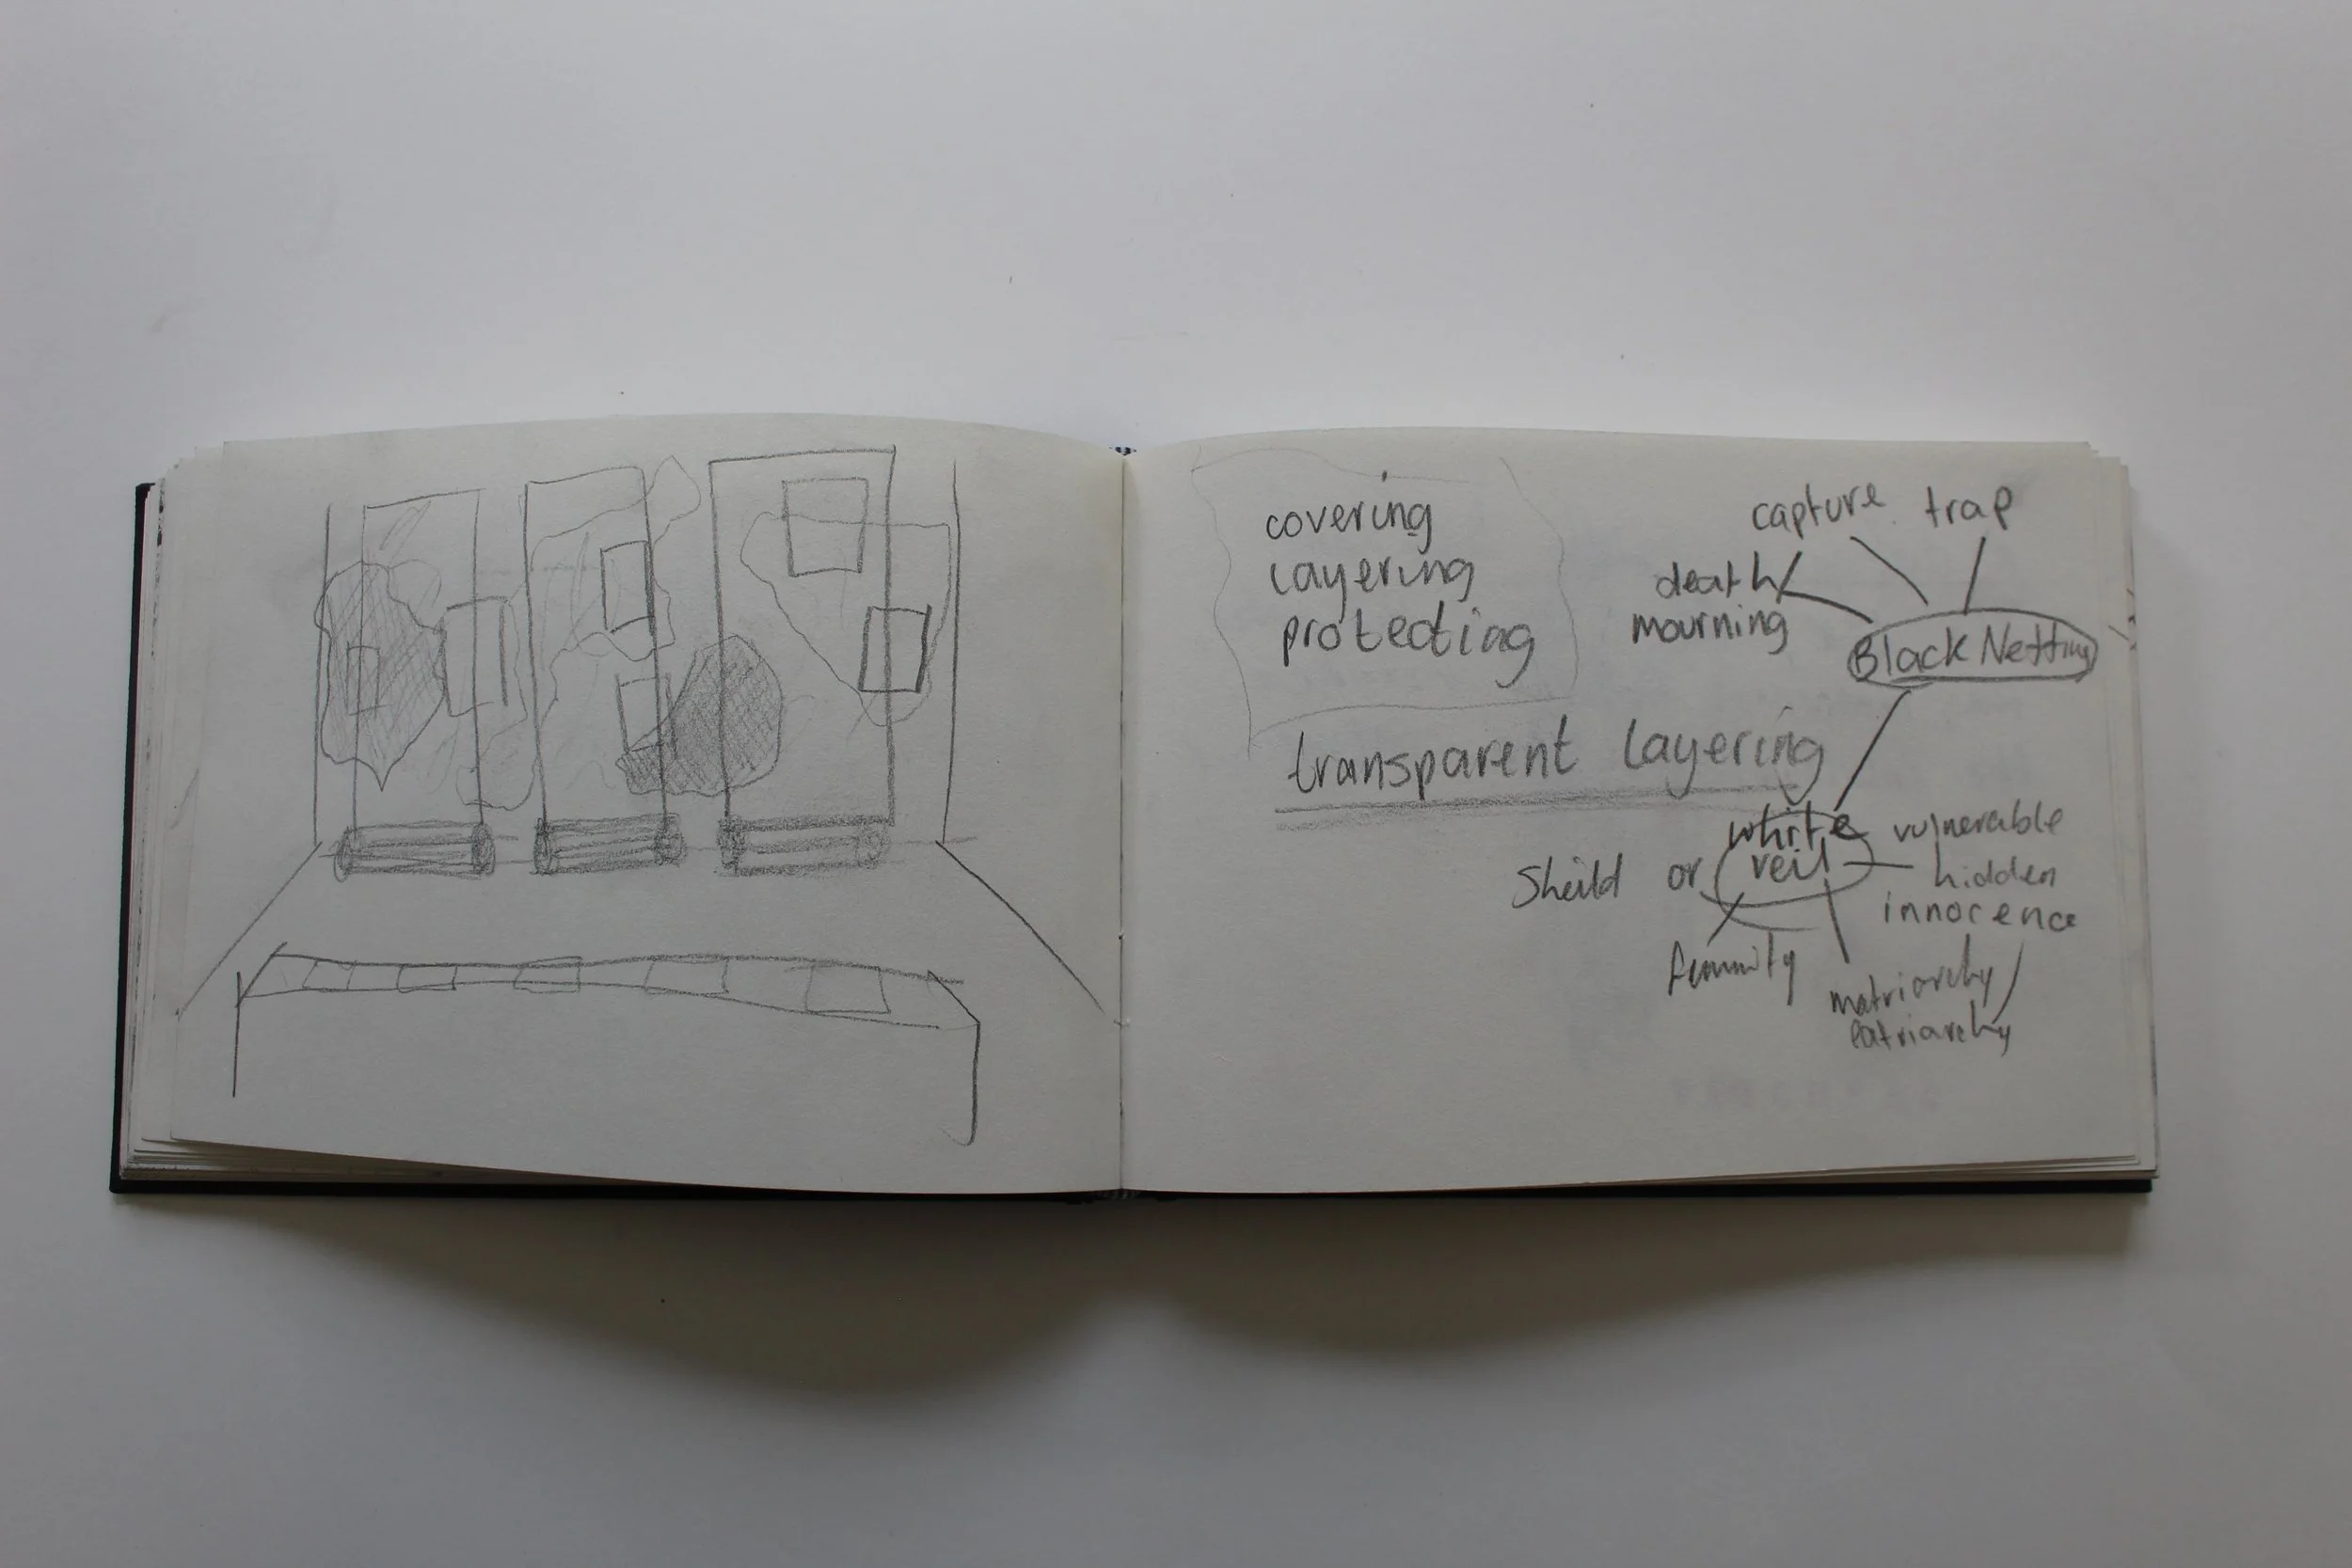 covering
layering
protecting
transparent layering
capture trap
death/
mourning
Black Netting
white
veil
Sheild or
vulnerable
hidden
innocence
femmity
matriarchy/
Patriarchy